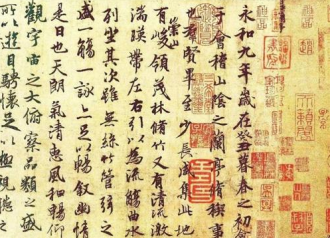 永和九年歲在癸丑暮春之初會
于會稽山陰之蘭亭脩禊事
也群賢畢至少長咸集此地
有崇山峻領茂林脩竹又有清流激
湍暎帶左右引以為流觴曲水
列坐其次雖無絲竹管弦之
盛一觴一詠亦足以暢叙幽情
是日也天朗氣清惠風和暢仰
觀宇宙之大俯察品類之盛
所以遊目騁懷足以極視聽之